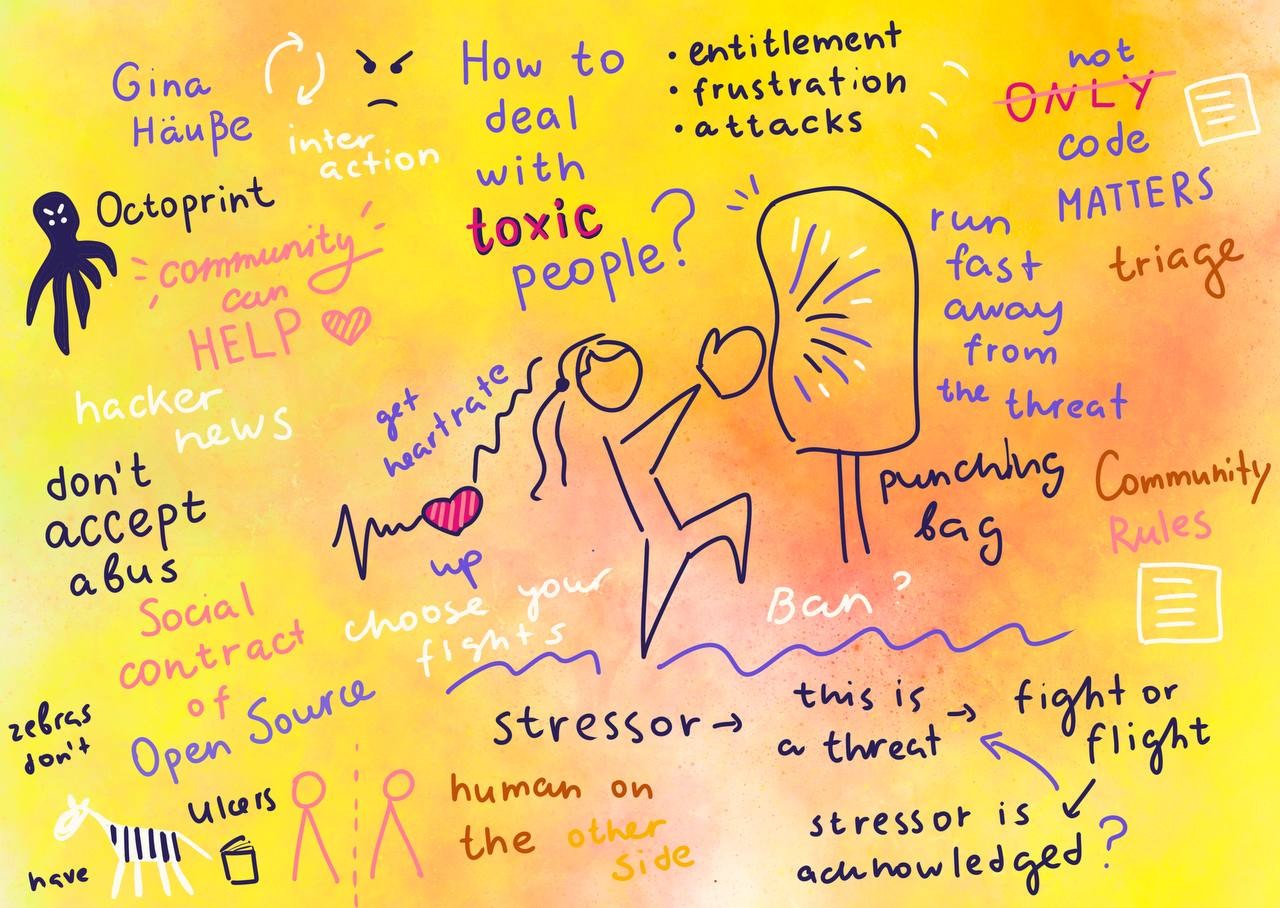 Gina
Häuße
inter
action
How to
deal
with
toxic
people?
• entitlement
• frustration
• attacks
not
ONLY
code
MATTERS
Octoprint
community
can
HELP
run
fast
away
from
the threat
triage
hacker
news
get
heartrate
up
don't
accept
abus
punching
bag
Community
Rules
Social
contract
of
Open Source
choose your
fights
Ban?
zebras
don't
have
ulcers
human on
the other
side
stressor →
this is
a threat
→ fight or
flight
stressor is
acknowledged?